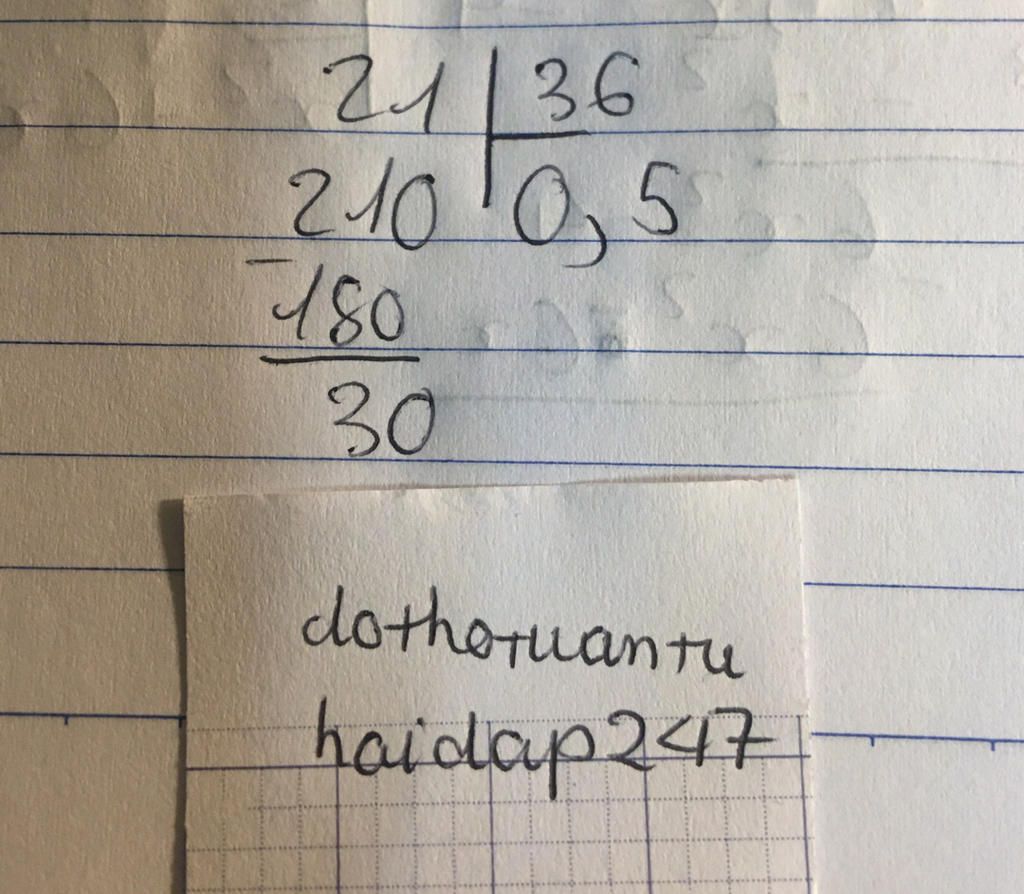 21 36
210 0,5
- 180
30
dothotuantu
haidap247